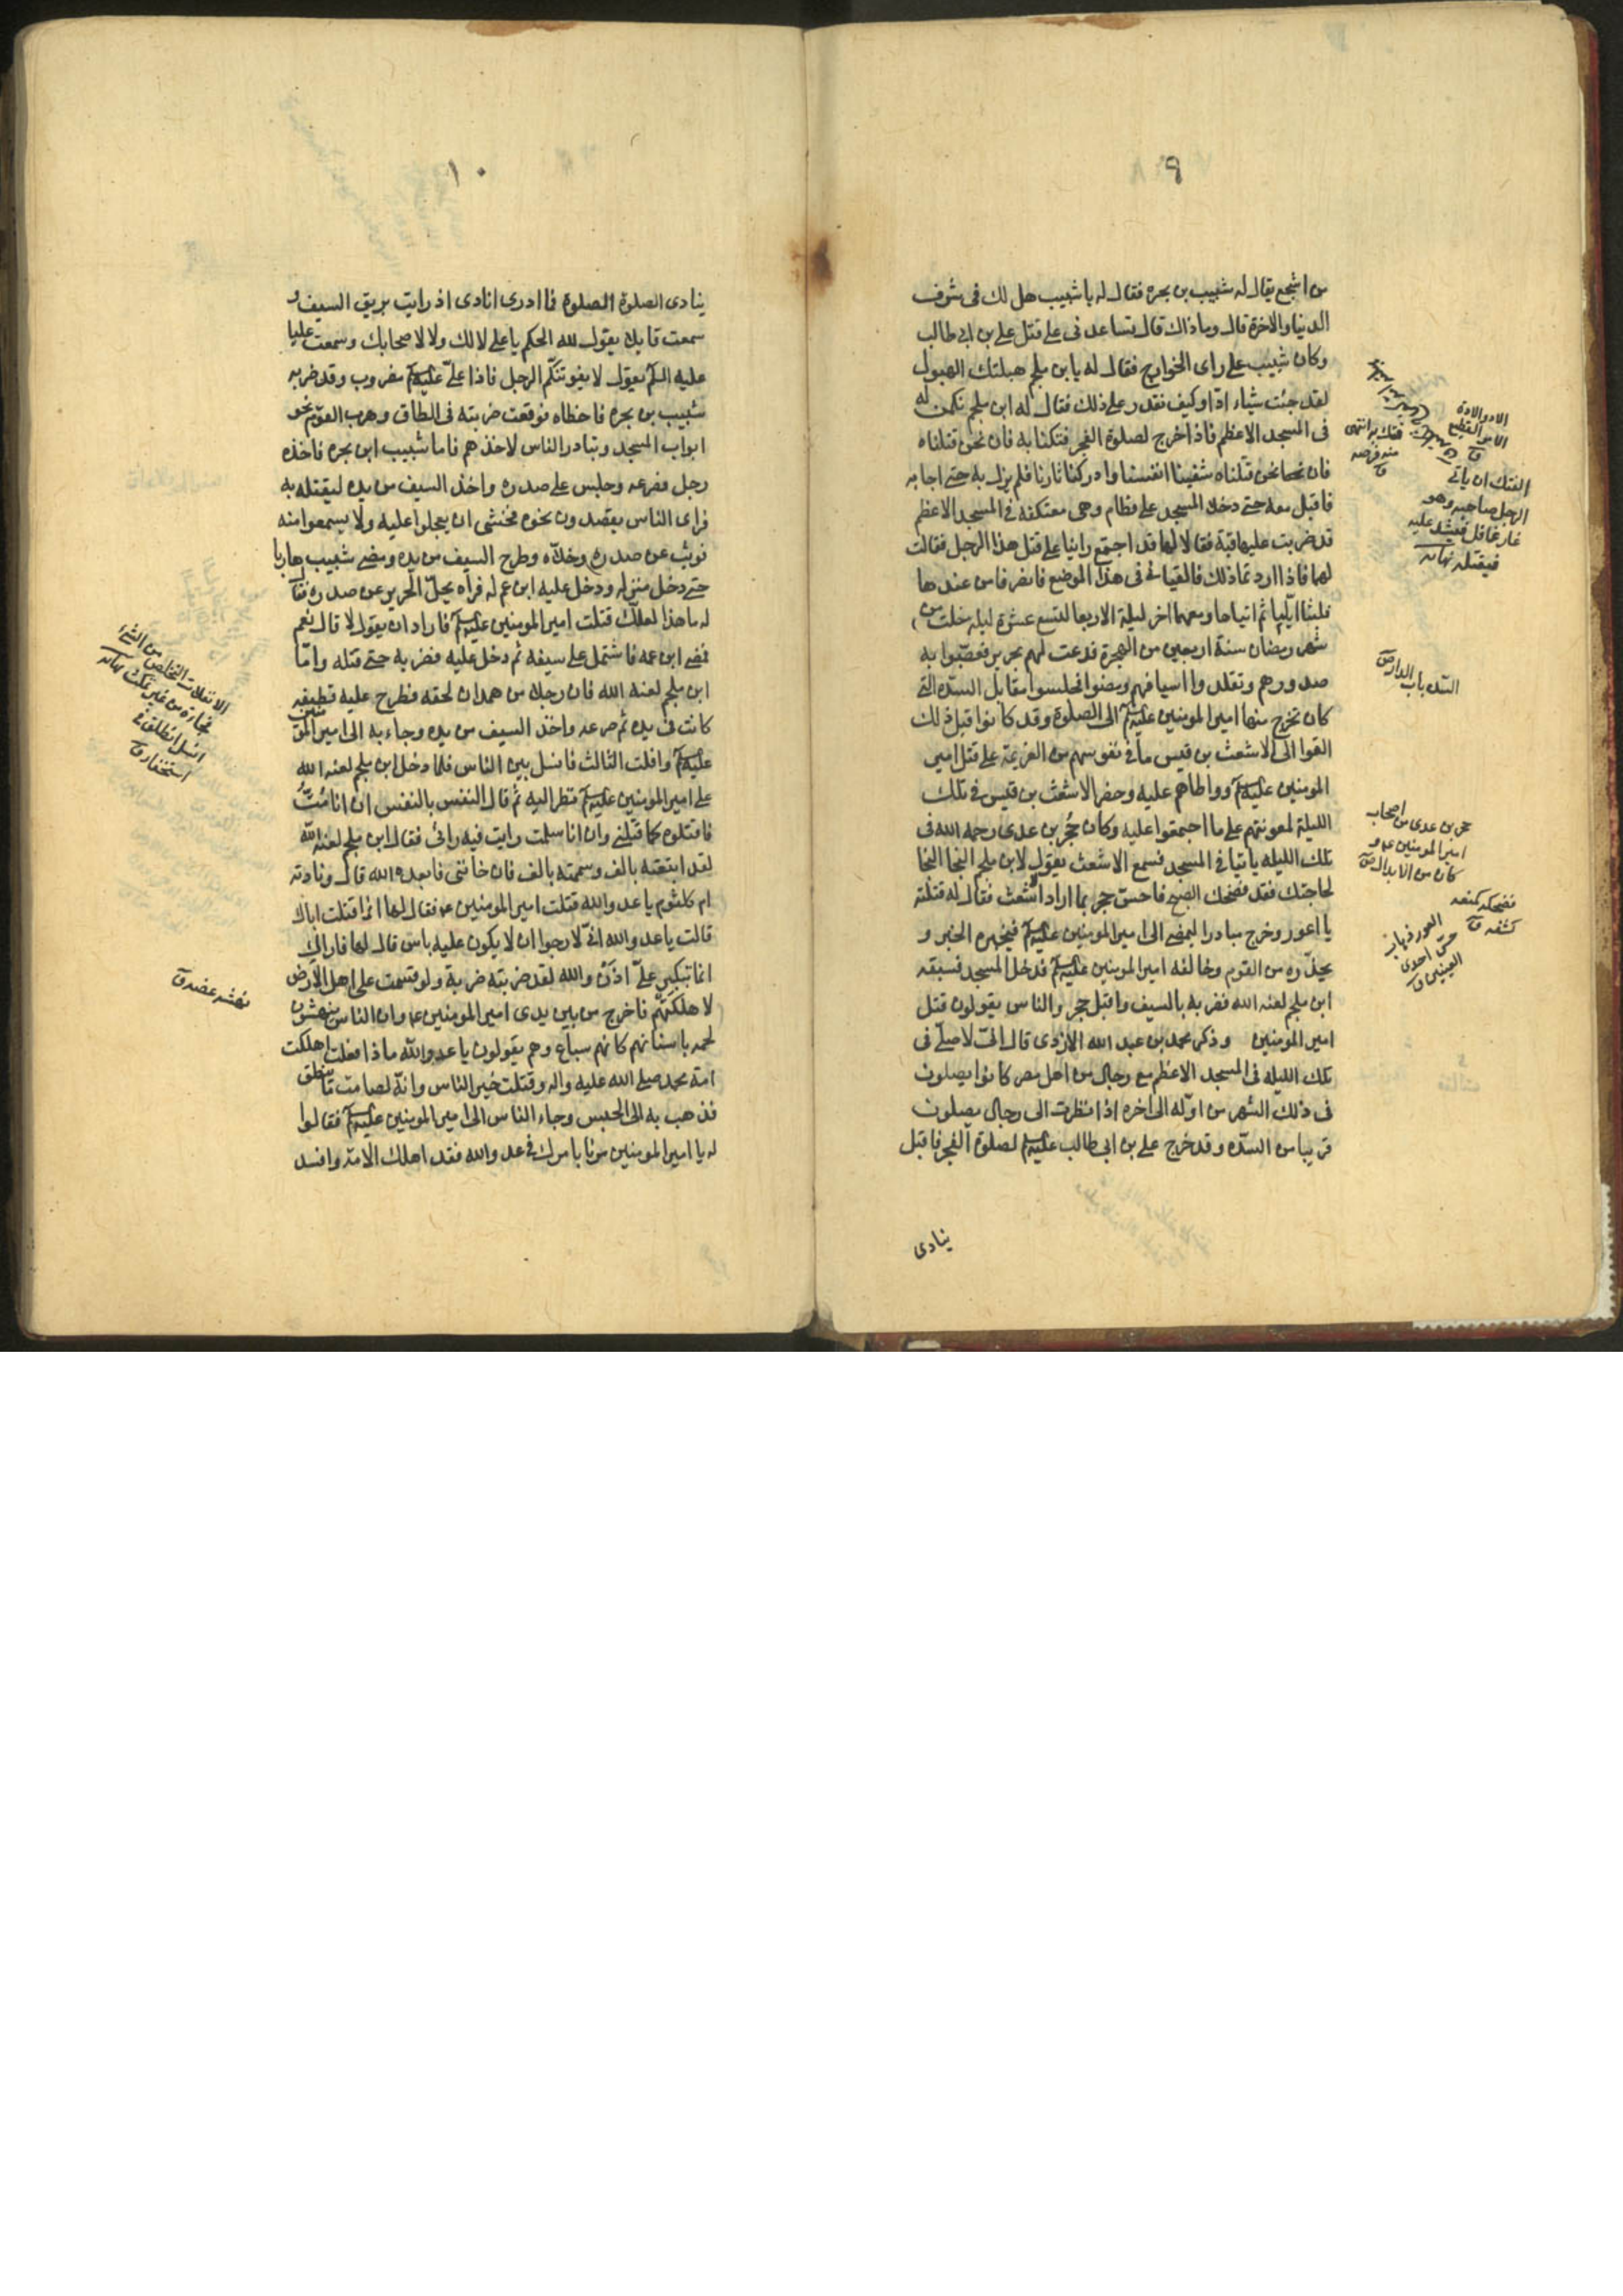 ٩
من اشجع يقال له شبيب بن بجره فقال له يا شبيب هل لك فى شرف
الدنيا والاخرة قال وما ذاك قال تساعدنى على قتل على بن ابى طالب
وكان شبيب على راى الخوارج فقال له يا بن ملجم هبلتك الهبول
لقد جئت شياء ادّا وكيف تقدر على ذلك فقال له ابن ملجم نكمن له
فى المسجد الاعظم فاذا خرج لصلوة الفجر فتكنا به فان نحن قتلناه
شفينا انفسنا وادركنا ثارنا فلم يزل به حتى اجابه
فاقبل معه حتى دخلا المسجد على قطام وهى معتكفة فى المسجد الاعظم
قد ضربت عليها قبة فقالا لها قد اجتمع راينا على قتل هذا الرجل فقالت
لهما فاذا اردتما ذلك فالقيانى فى هذا الموضع فانصرفا من عندها
فلبثا ايّاما ثم اتياها ومعهما اخر ليلة الاربعا لتسع عشرة ليلة خلت من
شهر رمضان سنة اربعين من الهجرة فدعت لهم بحرير فعصّبوا به
صدورهم وتقلدوا اسيافهم ومضوا فجلسوا مقابل السدّه التى
كان تخرج منها امير المومنين عليه السلام الى الصلوة وقد كانوا قبل ذلك
القوا الى الاشعث بن قيس ما فى نفوسهم من العزيمة على قتل امير
المومنين عليه السلام وواطاهم عليه وحضر الاشعث بن قيس فى تلك
الليلة لمعونتهم على ما اجتمعوا عليه وكان حُجر بن عدى رحمه الله فى
تلك الليله بايتا فى المسجد فسمع الاشعث يقول لابن ملجم النجا النجا
لحاجتك فقد فضحك الصبح فاحسّ حجر بما اراد اشعث فقال له قتلته
يا اعور وخرج مبادرا ليمضى الى امير المومنين عليه السلام فيخبره الخبر و
يحذّره من القوم وخالفه امير المومنين عليه السلام فدخل المسجد فسبقه
ابن ملجم لعنه الله فضربه بالسيف واقبل حجر والناس يقولون قتل
امير المومنين وذكر محمد بن عبد الله الازدى قال انّى لاصلّى فى
تلك الليله فى المسجد الاعظم مع رجال من اهل مصر كانوا يصلون
فى ذلك الشهر من اوّله الى اخره اذا نظرت الى رجال يصلون
قريبا من السدّه وقد خرج على بن ابى طالب عليه السلام لصلوة الفجر فاقبل
ينادى
الادّ والادة
الامر الفظيع
ق
الفتك ان ياتى
الرجل صاحبه وهو
غار غافل فيشد عليه
فيقتله نهايه
فتك به انتهز
منه فرصه
ق
السدّه باب الدار
حجر بن عدى من اصحاب
امير المومنين ع و
كان من الابدال
فضحه كمنعه
كشفه ق
العور ذهاب
حسّ احدى
العينين ق
١٠
ينادى الصلوة الصلوة فما ادرى انادى اذ رايت بريق السيف و
سمعت قايلا يقول لله الحكم يا على لا لك ولا لاصحابك وسمعت عليا
عليه السلام يقول لا يفوتنكّم الرجل فاذا علىّ عليه السلام مضروب وقد ضربه
شبيب بن بجره فاخطاه فوقعت ضربته فى الطاق وهرب القوم نحو
ابواب المسجد وتبادر الناس لاخذهم فاما شبيب ابن بجره فاخذه
رجل فصرعه وجلس على صدره واخذ السيف من يده ليقتله به
فراى الناس يقصدون نحوه فخشى ان يعجلوا عليه ولا يسمعوا منه
فوثب عن صدره وخلّاه وطرح السيف من يده ومضى شبيب هاربا
حتى دخل منزله ودخل عليه ابن عم له فراه يحلّ الحرير عن صدره فقال
له ما هذا لعلّك قتلت امير المومنين عليه السلام فاراد ان يقول لا قال نعم
فمضى ابن عمه فاشتمل على سيفه ثم دخل عليه فضربه حتى قتله وامّا
ابن ملجم لعنه الله فان رجلا من همدان لحقه فطرح عليه قطيفه
كانت فى يده ثم صرعه واخذ السيف من يده وجاء به الى امير المومنين
عليه السلام وافلت الثالث فانسل بين الناس فلما دخل ابن ملجم لعنه الله
على امير المومنين عليه السلام نظر اليه ثم قال النفس بالنفس ان انا متُّ
فاقتلوه كما قتلنى وان انا سلمت رايت فيه رائى فقال ابن ملجم لعنه الله
لقد ابتعته بالف وسممته بالف فان خاننى فابعده الله قال ونادته
ام كلثوم يا عدو الله قتلت امير المومنين ع فقال لها انما قتلت اباك
قالت يا عدو الله انّى لارجوا ان لا يكون عليه باس قال لها فاراك
انما تبكين علىّ اذن والله لقد ضربته ضربة ولو قسمت على اهل الارض
لاهلكتهم فاخرج من بين يدى امير المومنين ع وان الناس ينهشون
لحمه باسنانهم كانهم سباع وهم يقولون يا عدو الله ماذا فعلت اهلكت
امة محمد صلى الله عليه واله وقتلت خير الناس وانّه لصامت ما ينطق
فذهب به الى الحبس وجاء الناس الى امير المومنين عليه السلام فقالوا
له يا امير المومنين مرنا بامرك فى عدو الله فقد اهلك الامة وافسد
الانفلات التخلص من الشىء
فجاءة من غير تمكث نهايه
انسل انطلق فى
استخفاء ق
نهشه عضه ق